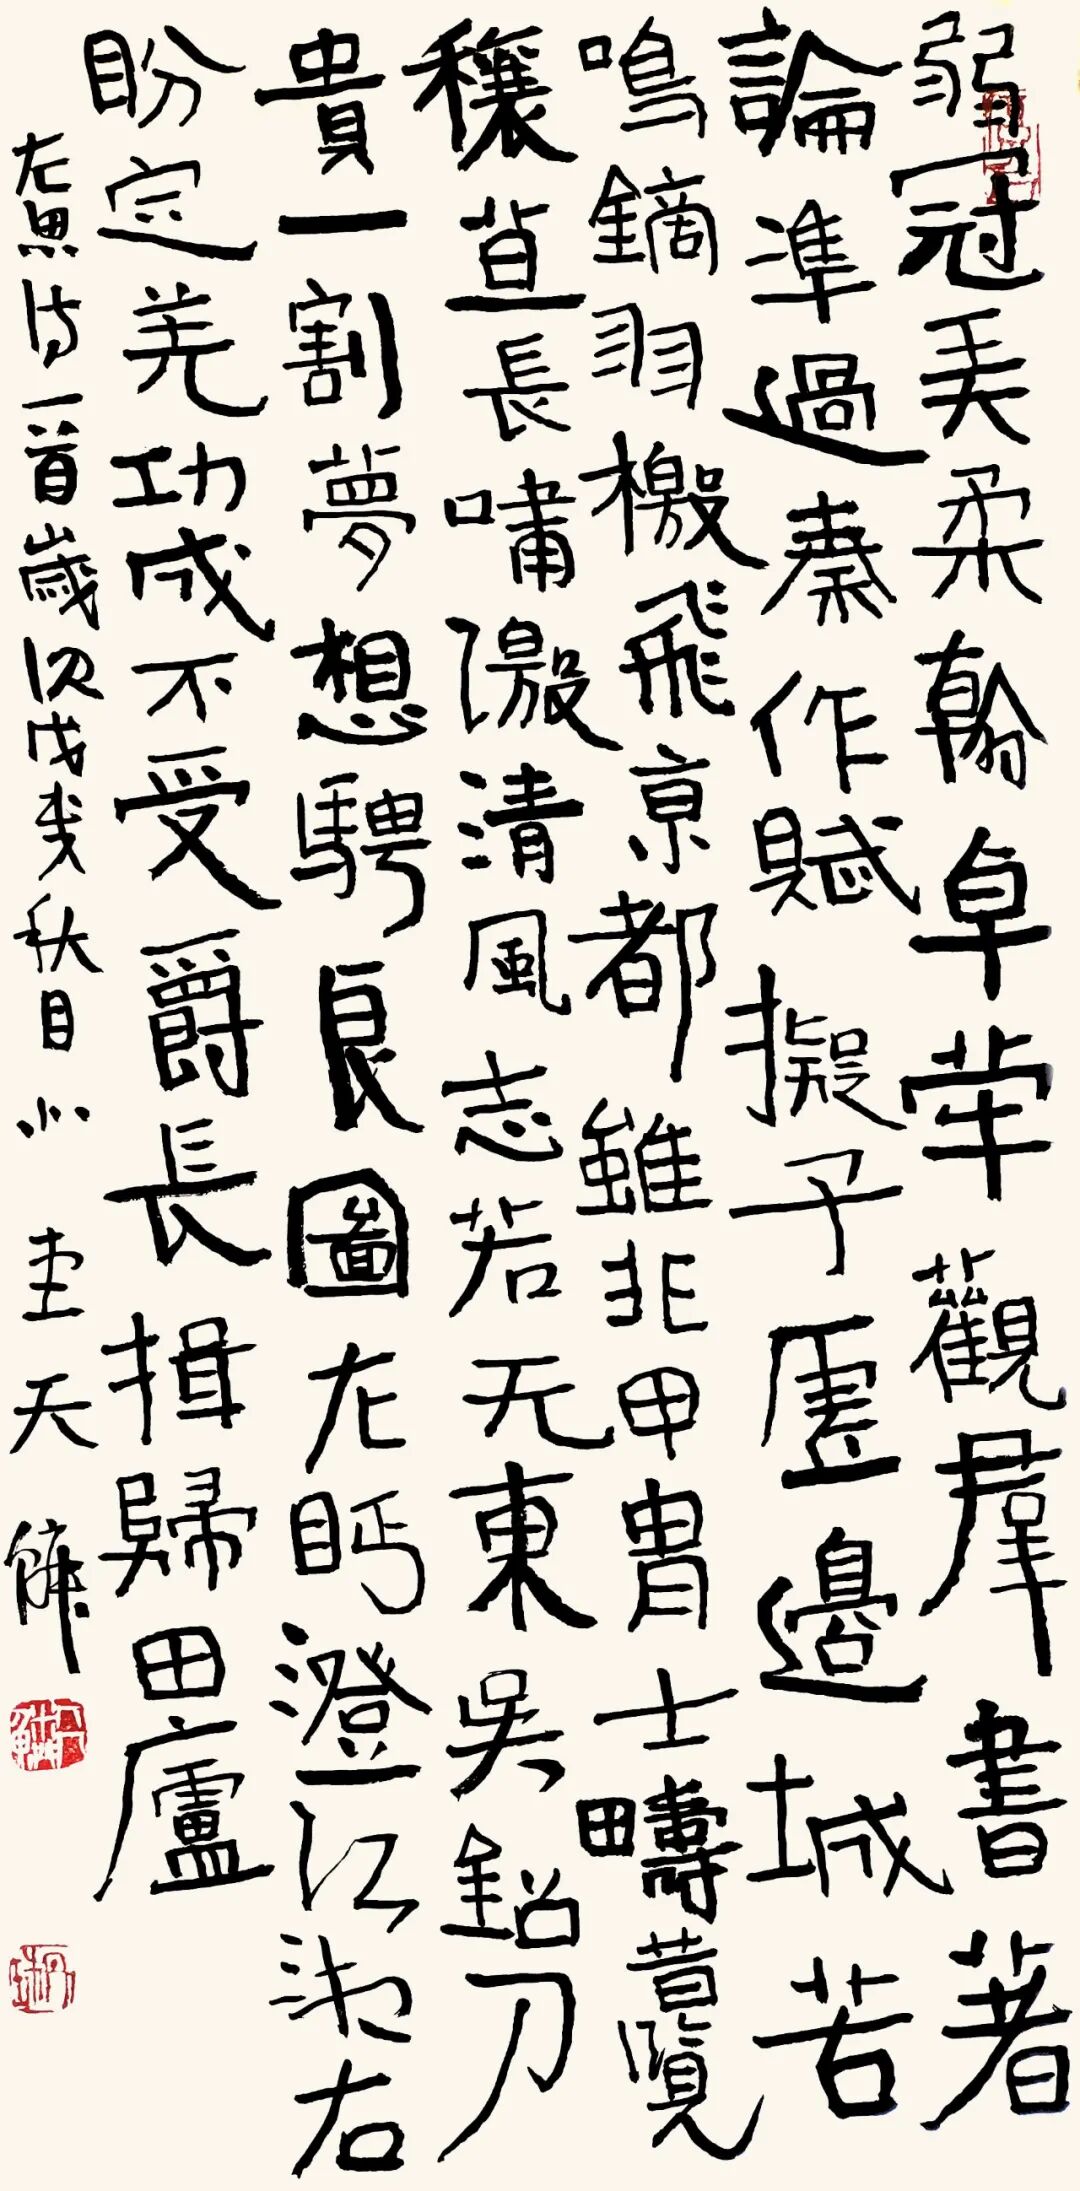 弱冠弄柔翰卓犖觀群書著
論準過秦作賦擬子虛邊城苦
鳴鏑羽檄飛京都雖非甲冑士疇昔覽
穰苴長嘯激清風志若无東吳鉛刀
貴一割夢想騁良圖左眄澄江湘右
盼定羌功成不受爵長揖歸田廬
左思诗一首歲次戊戌秋